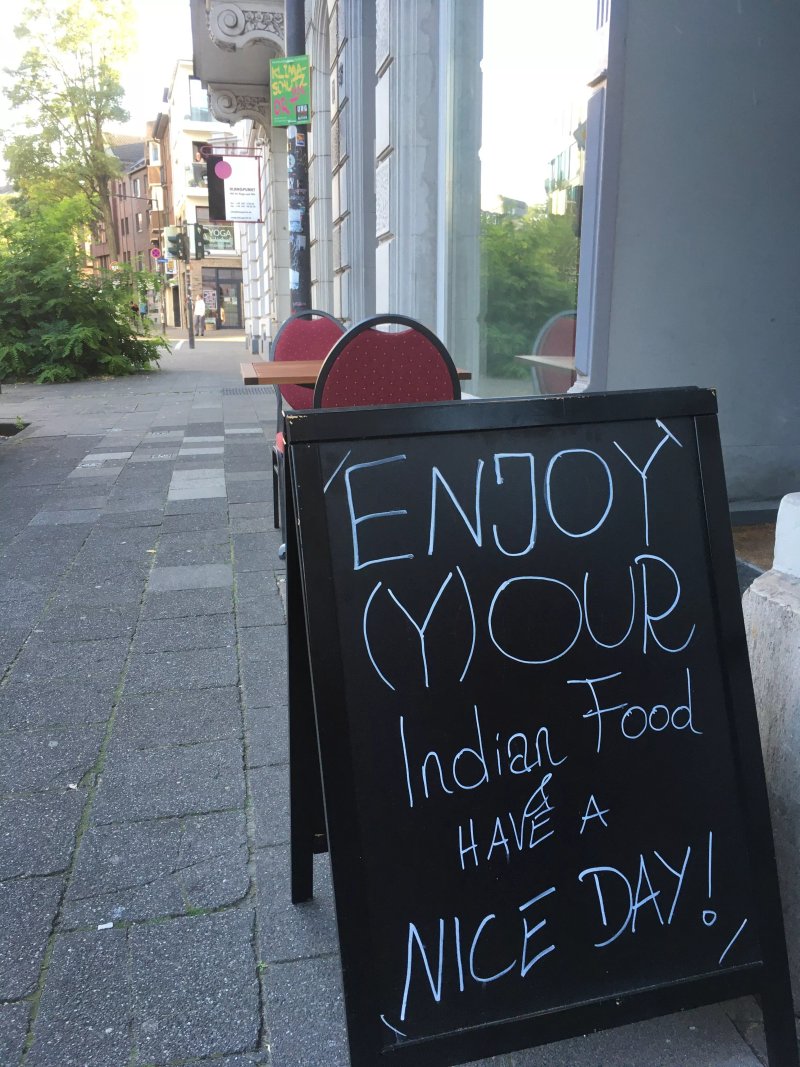 KLIMA-
SCHUTZ
YOGA
ENJOY
(Y)OUR
Indian Food
&
HAVE A
NICE DAY!